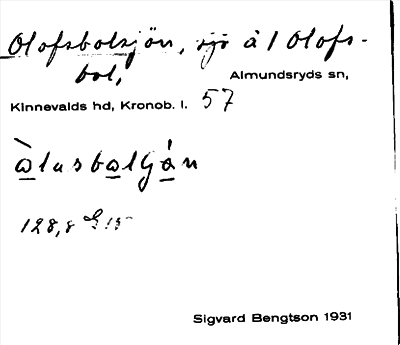 Olofsbolsjön, sjö å 1 Olofs-
bol,
Almundsryds sn,
Kinnevalds hd, Kronob. l. 57
128,8
Sigvard Bengtson 1931